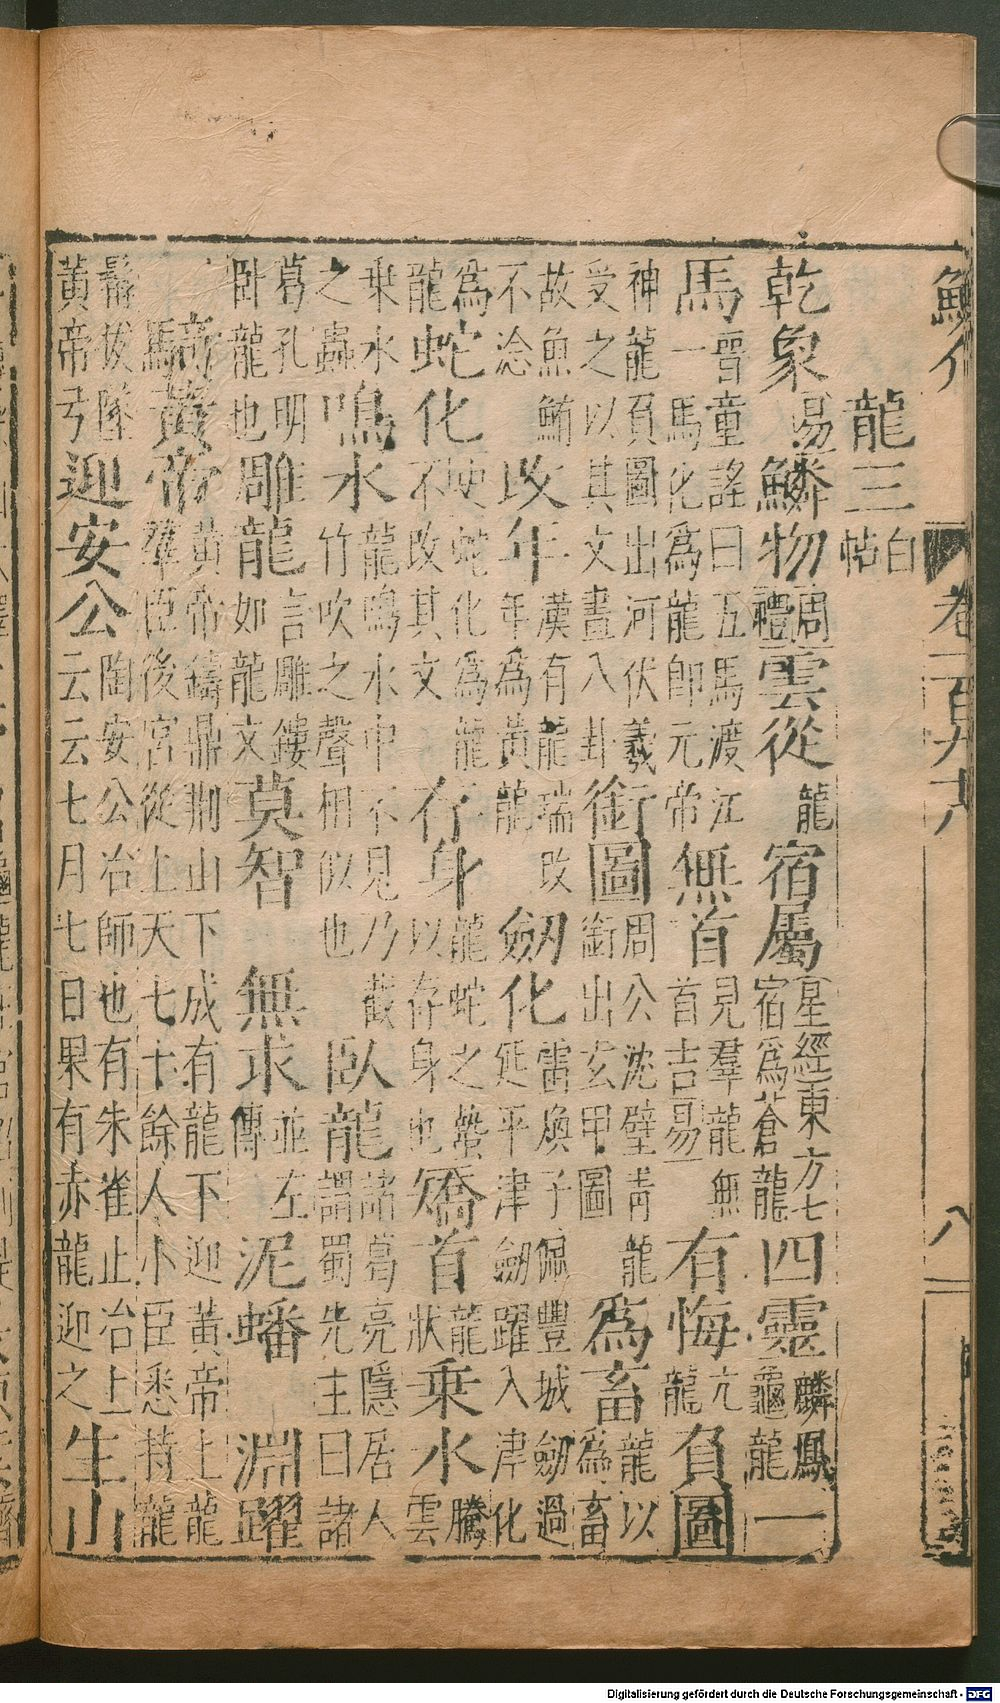 鱗介 卷一百九十八 八
龍三 白帖
乾象 易 鱗物 周禮 雲從 龍 宿屬 星經東方七宿為蒼龍 四靈 麟鳳龜龍 一
馬 晉童謠曰五馬渡江一馬化為龍即元帝 無首 見羣龍無首吉易 有悔 亢龍 負圖
神龍負圖出河伏羲受之以其文畫八卦 銜圖 周公沈璧青龍銜出玄甲圖 為畜 龍以為畜
故魚鮪不淰 改年 漢有龍瑞改年為黃龍 劒化 雷煥子佩豐城劒過延平津劒躍入津化
為龍 蛇化 史蛇化為龍不改其文 存身 龍蛇之蟄以存身也 矯首 龍狀 乗水 騰雲
乗水之蟲 鳴水 龍鳴水中不見乃截竹吹之聲相似也 臥龍 諸葛亮隱居人謂蜀先主曰諸
葛孔明卧龍也 雕龍 言雕鏤如龍文 莫智 無求 並左傳 泥蟠 淵躍
黃帝 黃帝鑄鼎荊山下成有龍下迎黃帝上龍羣臣後宮從上天七十餘人小臣悉持龍
髯拔墜黃帝弓 迎安公 陶安公冶師也有朱雀止冶上云云七月七日果有赤龍迎之 生山
Digitalisierung gefördert durch die Deutsche Forschungsgemeinschaft - DFG